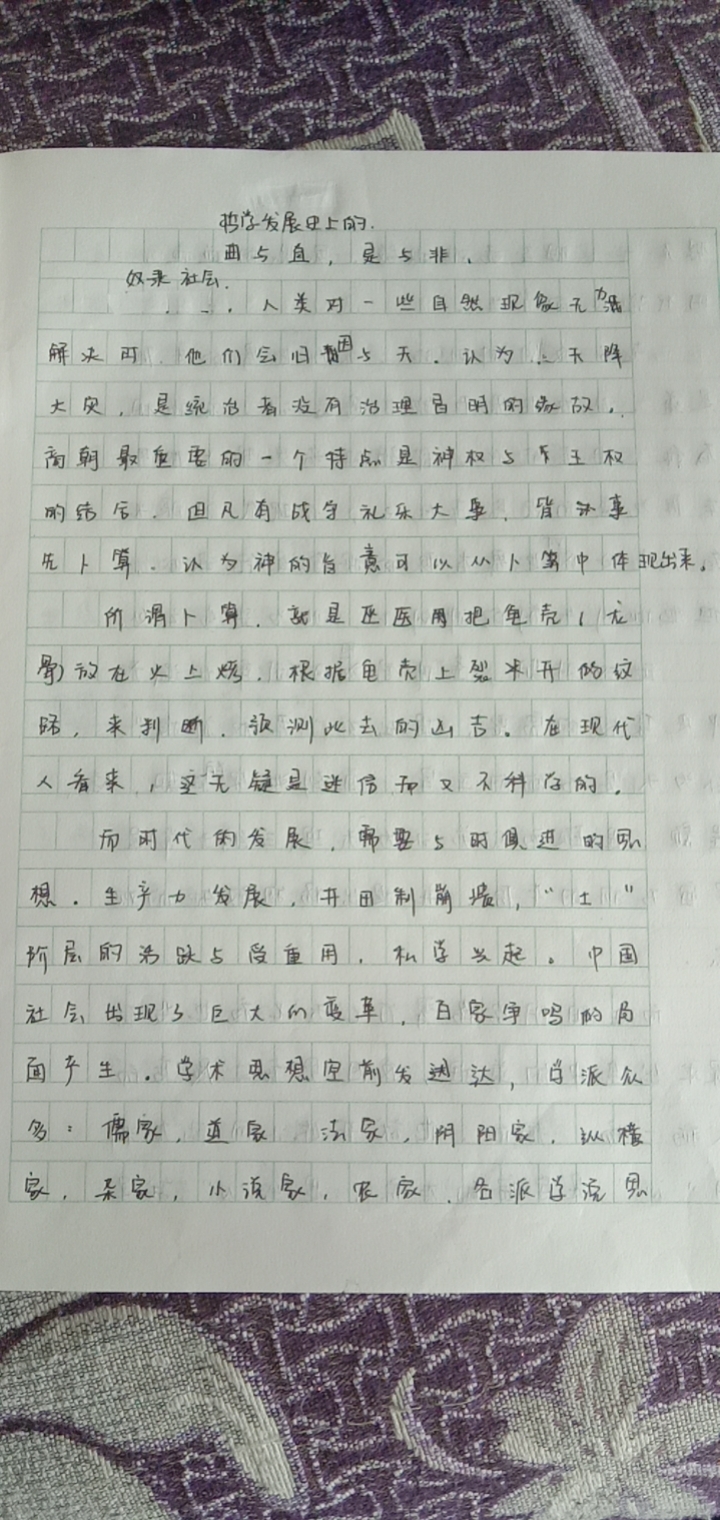 哲学发展史上的.
曲与直，是与非、
奴隶社会.
人类对一些自然现象无力
解决时，他们会归因与天、认为 天降
大灾，是统治者没有治理贤明的缘故，
商朝最重要的一个特点是神权与王权
的结合、但凡有战争礼乐大事、皆决事
先卜算、认为神的旨意可以从卜筹中体现出来，
所谓卜算、就是巫医用把龟壳（龙
骨）放在火上烤、根据龟壳上裂开的纹
路，来判断、预测此去的凶吉。在现代
人看来，这无疑是迷信而又不科学的，
而时代的发展，需要与时俱进的思
想．生产力发展，井田制崩溃，“士”
阶层的活跃与受重用，私学兴起。中国
社会出现了巨大的变革，百家争鸣的局
面产生．学术思想空前发达，学派众
多：儒家，道家、法家，阴阳家、纵横
家，杂家，小说家，农家、各派学说思